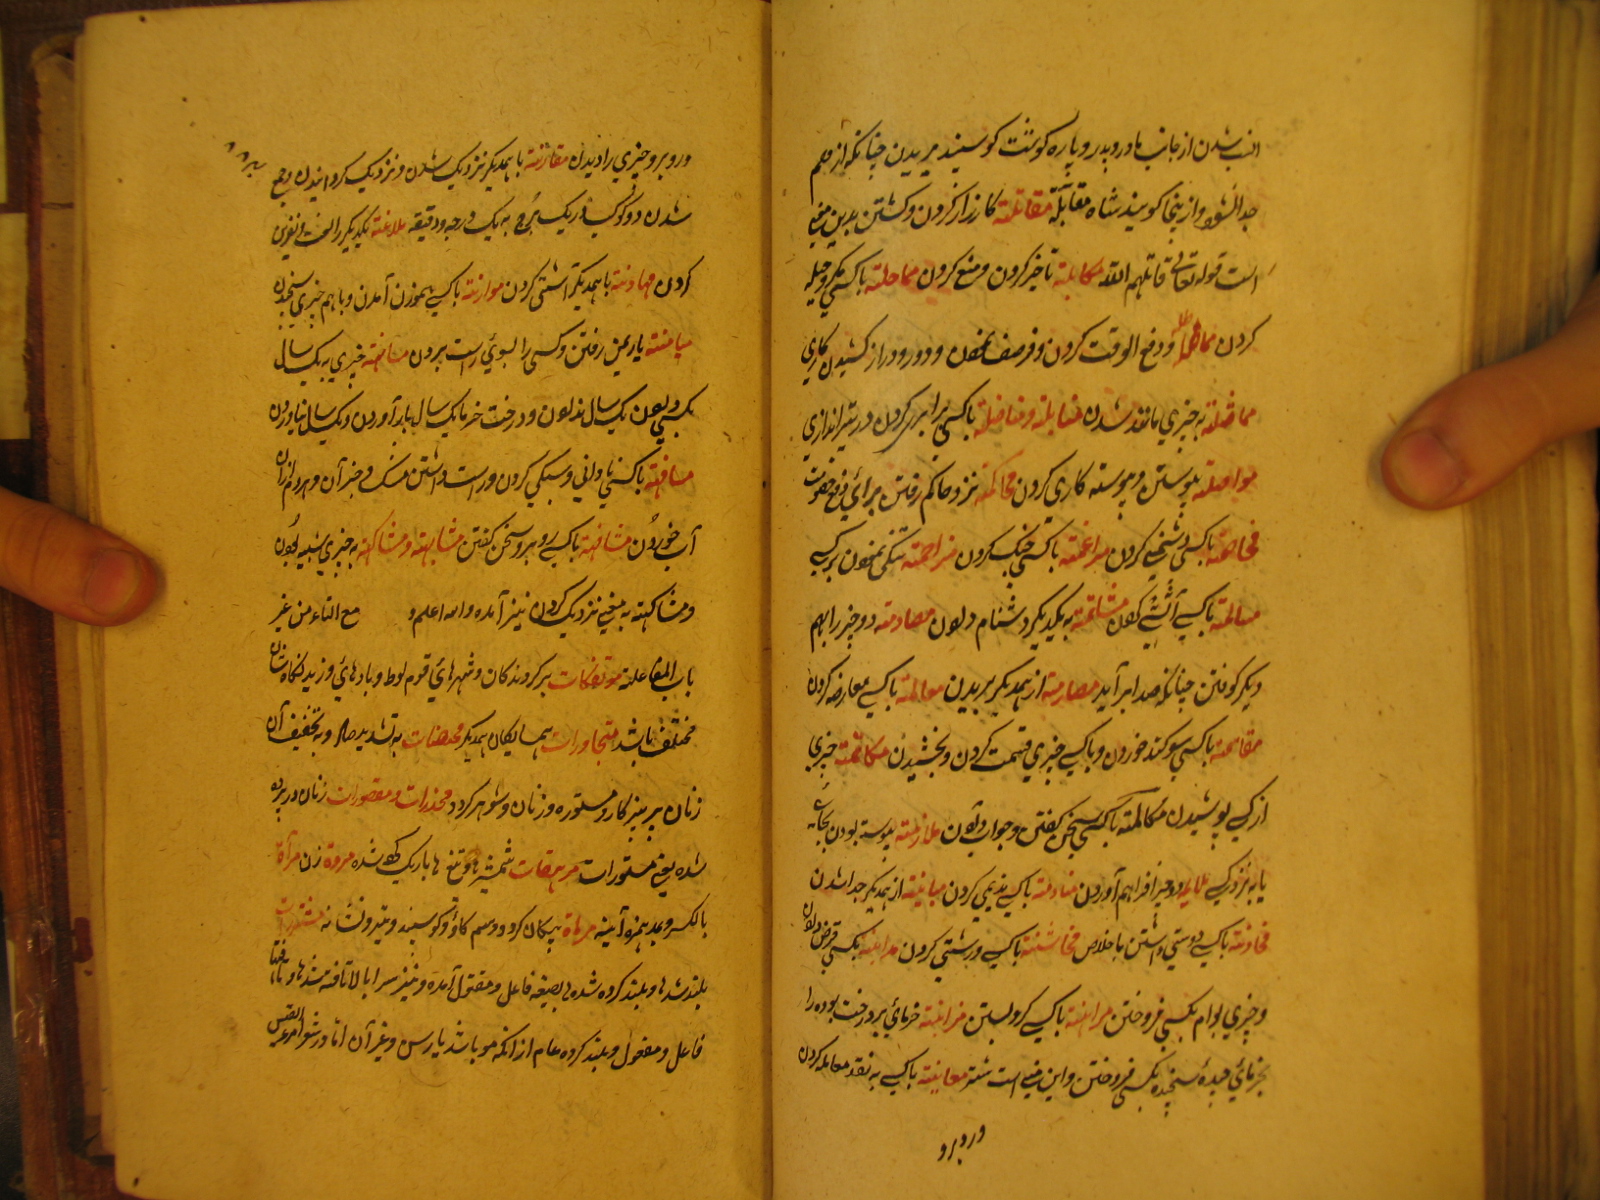 است شدن از جانب مادر و پدر و پاره گوشت گوسیند بریدن چنانکه از هم
جدا نشود و از ینجا گویند شاه مقابلة مقاتلة کارزار کردن و کشتن بدین معنی
است قوله تعالی قاتلهم الله مکابلة تاخیر کردن و منع کردن مماحلة باکسی مکر و حیله
کردن مماطلة دفع الوقت کردن و فرصت نمودن و دور و دراز کشیدن کاری
مماثلة به چیزی مانند شدن مقابلة و مناضلة باکسی برابری کردن در تیراندازی
مواصلة پیوستن و پیوسته کاری کردن محاکمة نزد حاکم رفتن برای دفع خصومت
مخاصمة باکسی دشمنی کردن مراغمة باکسی جنگ کردن مزاحمة تنگی نمودن بر کسی
مسالمة باکسی آشتی کردن مشاتمة به یکدیگر دشنام دادن مصادمة دو چیز را بهم
دیگر کوفتن چنانکه صدا برآید مصارمة از همدیگر بریدن معالمة باکسی معارضه کردن
مقاسمة باکسی سوگند خوردن و باکسی چیزی قسمت کردن و بخشیدن مکاتمة چیزی
از کسی پوشیدن مکالمة باکسی سخن گفتن و جواب دادن ملازمة پیوسته بودن بجای
یا به نزد کسی دو چیز فراهم آوردن منادمة باکسی ندیمی کردن مباینة از همدیگر جدا شدن
مخادنة باکسی دوستی داشتن باخلاص مخاشنة باکسی درشتی کردن مداینة بکسی قرض دادن
و چیزی بوام بکسی فروختن مراهنة باکسی گرو بستن مزابنة خرمای بر درخت بوده را
بخرمای چیده سنجیده بکسی فروختن و این منهی است معاینة باکسی به نقد معامله کردن
و روبرو
و روبرو چیزی را دیدن مقارنة با همدیگر نزدیک شدن و نزدیک گردانیدن و جمع
شدن دو کوکب در یک برج به یک درجه و دقیقه ملاعنة یکدیگر را لعنت و نفرین
کردن مهادنة با همدیگر آشتی کردن موازنة باکسی هموزن آمدن و با هم چیزی سنجیدن
میامنة یا یمن رفتن و کسی را بسوی راست بردن مسانهة چیزی به یک سال
بکسی دادن یک سال ندادن و درخت خرما یک سال بار آوردن و یک سال نیاوردن
مسافهة باکسی نادانی و سبکی کردن و راست داشتن مشک و جز آن و هر دم از آن
آب خوردن مشافهة باکسی روبرو سخن گفتن مشابهة و مشاکهة به چیزی شبیه بودن
و مشاکهة به معنی نزدیک کردن نیز آمده والله اعلم و مع التاء من غیر
باب المفاعلة موتفکات برگردندگان و شهرهای قوم لوط و بادهای وزیدنگاه شان
مختلف باشد متجاورات همسایگان همدیگر محصنات به تشدید صاد و به تخفیف آن
زنان پرهیزکار و مستوره و زنان و شوهر کرده مخدرات و مقصورات زنان در پرده
شده یعنی مستورات مرهفات شمشیرها و تیغ ها باریک کرده شده مروة زن مرآة
بالکسر و بمد همزه آینه مرماة پیکان گرد و سم گاو و گوسپند و تیر و نشانه
بلند شدها و بلند کرده شدها بصیغه فاعل و مفعول آمده و نیز سرابالا تافته شدها و تافتها
فاعل و مفعول و بلند کرده عام از آنکه مو باشد یا رسن و غیر آن اما در شعر امرء القیس